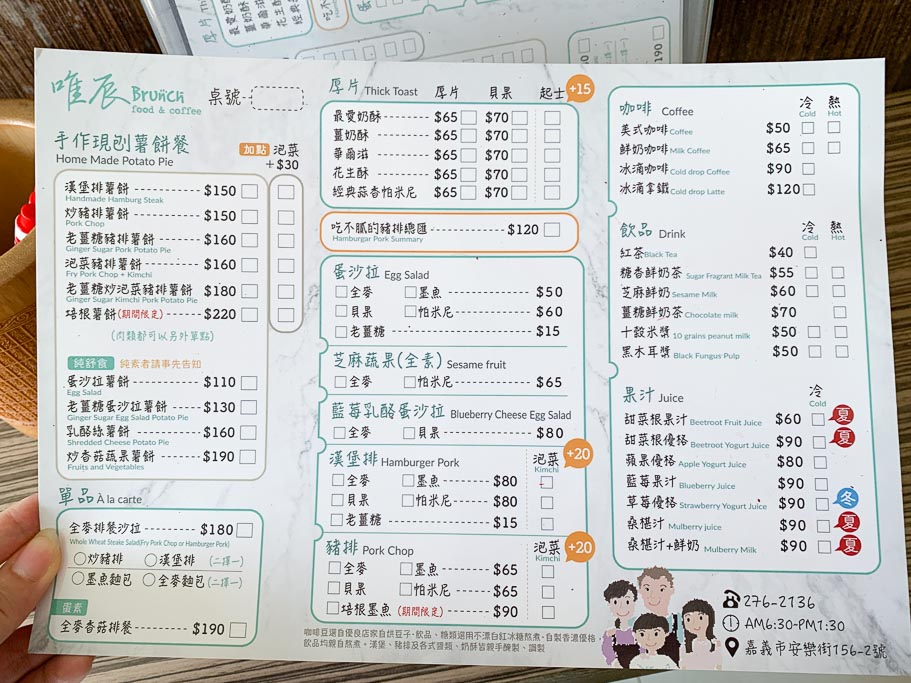 唯辰 Brunch
food & coffee
桌號
手作現刨薯餅餐
Home Made Potato Pie
加點 泡菜
+$30
漢堡排薯餅 ---------- $150
Handmade Hamburg Steak
炒豬排薯餅 ---------- $150
Pork Chop
老薑糖豬排薯餅 ------ $160
Ginger Sugar Pork Potato Pie
泡菜豬排薯餅 -------- $160
Fry Pork Chop + Kimchi
老薑糖炒泡菜豬排薯餅 $180
Ginger Sugar Kimchi Pork Potato Pie
培根薯餅(期間限定) ---- $220
(肉類都可以另外單點)
純舒食 純素者請事先告知
蛋沙拉薯餅 ---------- $110
Egg Salad
老薑糖蛋沙拉薯餅 ----- $130
Ginger Sugar Egg Salad Potato Pie
乳酪絲薯餅 ---------- $160
Shredded Cheese Potato Pie
炒香菇蔬果薯餅 ------ $190
Fruits and Vegetables
單品 À la carte
全麥排餐沙拉 -------- $180
Whole Wheat Steake Salad(Fry Pork Chop or Hamburger Pork)
炒豬排 漢堡排 (二擇一)
墨魚麵包 全麥麵包 (二擇一)
蛋素
全麥香菇排餐 -------- $190
厚片 Thick Toast 厚片 貝果 起士 +15
最愛奶酥 ------ $65 $70
薑奶酥 -------- $65 $70
華爾滋 -------- $65 $70
花生酥 -------- $65 $70
經典蒜香帕米尼 $65 $70
吃不膩的豬排總匯 -------- $120
Hamburgar Pork Summary
蛋沙拉 Egg Salad
全麥 墨魚 ---------- $50
貝果 帕米尼 -------- $60
老薑糖 ---------- $15
芝麻蔬果(全素) Sesame fruit
全麥 帕米尼 -------- $65
藍莓乳酪蛋沙拉 Blueberry Cheese Egg Salad
全麥 貝果 ---------- $80
漢堡排 Hamburger Pork 泡菜 +20
Kimchi
全麥 墨魚 ------ $80
貝果 帕米尼 ---- $80
老薑糖 ---------- $15
豬排 Pork Chop 泡菜 +20
Kimchi
全麥 墨魚 ------ $65
貝果 帕米尼 ---- $65
培根墨魚 (期間限定) ------ $90
咖啡豆選自優良店家自烘豆子,飲品、糖類選用不漂白紅冰糖熬煮,自製香濃優格,
飲品均親自熬煮。漢堡、豬排及各式醬類、奶酥皆親手醃製、調製
咖啡 Coffee 冷 熱
Cold Hot
美式咖啡 Coffee $50
鮮奶咖啡 Milk Coffee $65
冰滴咖啡 Cold drop Coffee $90
冰滴拿鐵 Cold drop Latte $120
飲品 Drink 冷 熱
Cold Hot
紅茶 Black Tea $40
糖香鮮奶茶 Sugar Fragrant Milk Tea $55
芝麻鮮奶 Sesame Milk $60
薑糖鮮奶茶 Chocolate milk $70
十穀米漿 10 grains peanut milk $50
黑木耳漿 Black Fungus Pulp $50
果汁 Juice 冷
Cold
甜菜根果汁 Beetroot Fruit Juice $60 夏
甜菜根優格 Beetroot Yogurt Juice $90 夏
蘋果優格 Apple Yogurt Juice $80
藍莓果汁 Blueberry Juice $90
草莓優格 Strawberry Yogurt Juice $90 冬
桑椹汁 Mulberry juice $90 夏
桑椹汁+鮮奶 Mulberry Milk $90 夏
276-2136
AM6:30-PM1:30
嘉義市安樂街156-2號